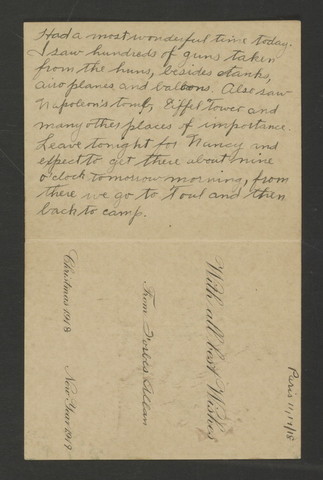 Had a most wonderful time today.
I saw hundreds of guns taken
from the huns, besides tanks,
airoplanes and baloons. Also saw
Napoleon's tomb, Eiffel Tower and
many other places of importance.
Leave tonight for Nancy and
expect to get there about nine
o'clock tomorrow morning, from
there we go to Toul and then
back to camp.
With all best Wishes
From
Allan
Christmas 1918 New Year 1919
Paris